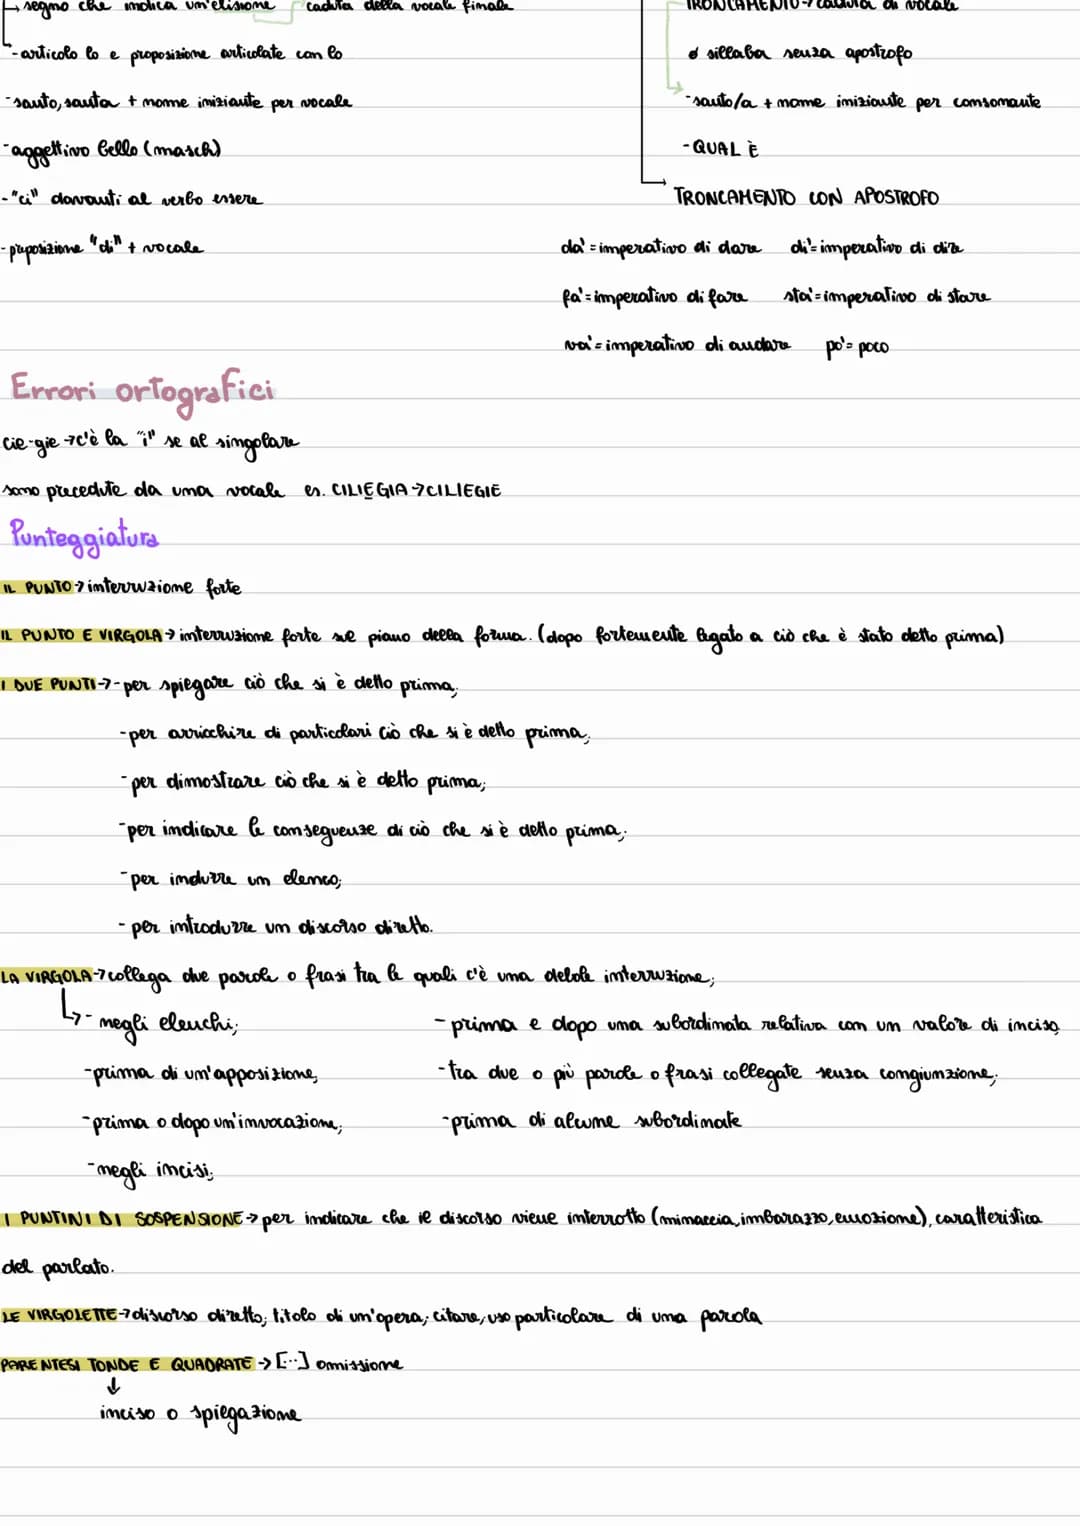 segno che indica un'elisione caduta della vocale finale
TRONCAMENTO→caduta di vocale
-articolo lo e preposizione articolate con lo
o sillaba senza apostrofo
-santo, santa + nome iniziante per vocale
-santo/a + nome iniziante per consonante
-aggettivo bello (masch)
-QUAL È
-"ci" davanti al verbo essere
TRONCAMENTO CON APOSTROFO
-preposizione "di" + vocale
da' = imperativo di dare di'= imperativo di dire
fa'= imperativo di fare sta'= imperativo di stare
va'= imperativo di andare po'= poco
Errori ortografici
cie-gie →c'è la "i" se al singolare
sono precedute da una vocale es. CILIEGIA→CILIEGIE
Punteggiatura
IL PUNTO→interruzione forte
IL PUNTO E VIRGOLA→ interruzione forte sul piano della forma. (dopo fortemente legato a ciò che è stato detto prima)
I DUE PUNTI→-per spiegare ciò che si è detto prima;
-per arricchire di particolari ciò che si è detto prima;
-per dimostrare ciò che si è detto prima;
-per indicare le conseguenze di ciò che si è detto prima;
-per indurre un elenco;
-per introdurre un discorso diretto.
LA VIRGOLA→collega due parole o frasi tra le quali c'è una debole interruzione;
-negli elenchi;
-prima e dopo una subordinata relativa con un valore di inciso
-prima di un'apposizione;
-tra due o più parole o frasi collegate senza congiunzione;
-prima o dopo un'invocazione;
-prima di alcune subordinate
-negli incisi;
I PUNTINI DI SOSPENSIONE→per indicare che il discorso viene interrotto (minaccia, imbarazzo, emozione), caratteristica
del parlato.
LE VIRGOLETTE→discorso diretto; titolo di un'opera; citare, uso particolare di una parola
PARENTESI TONDE E QUADRATE →[...] omissione
inciso o spiegazione